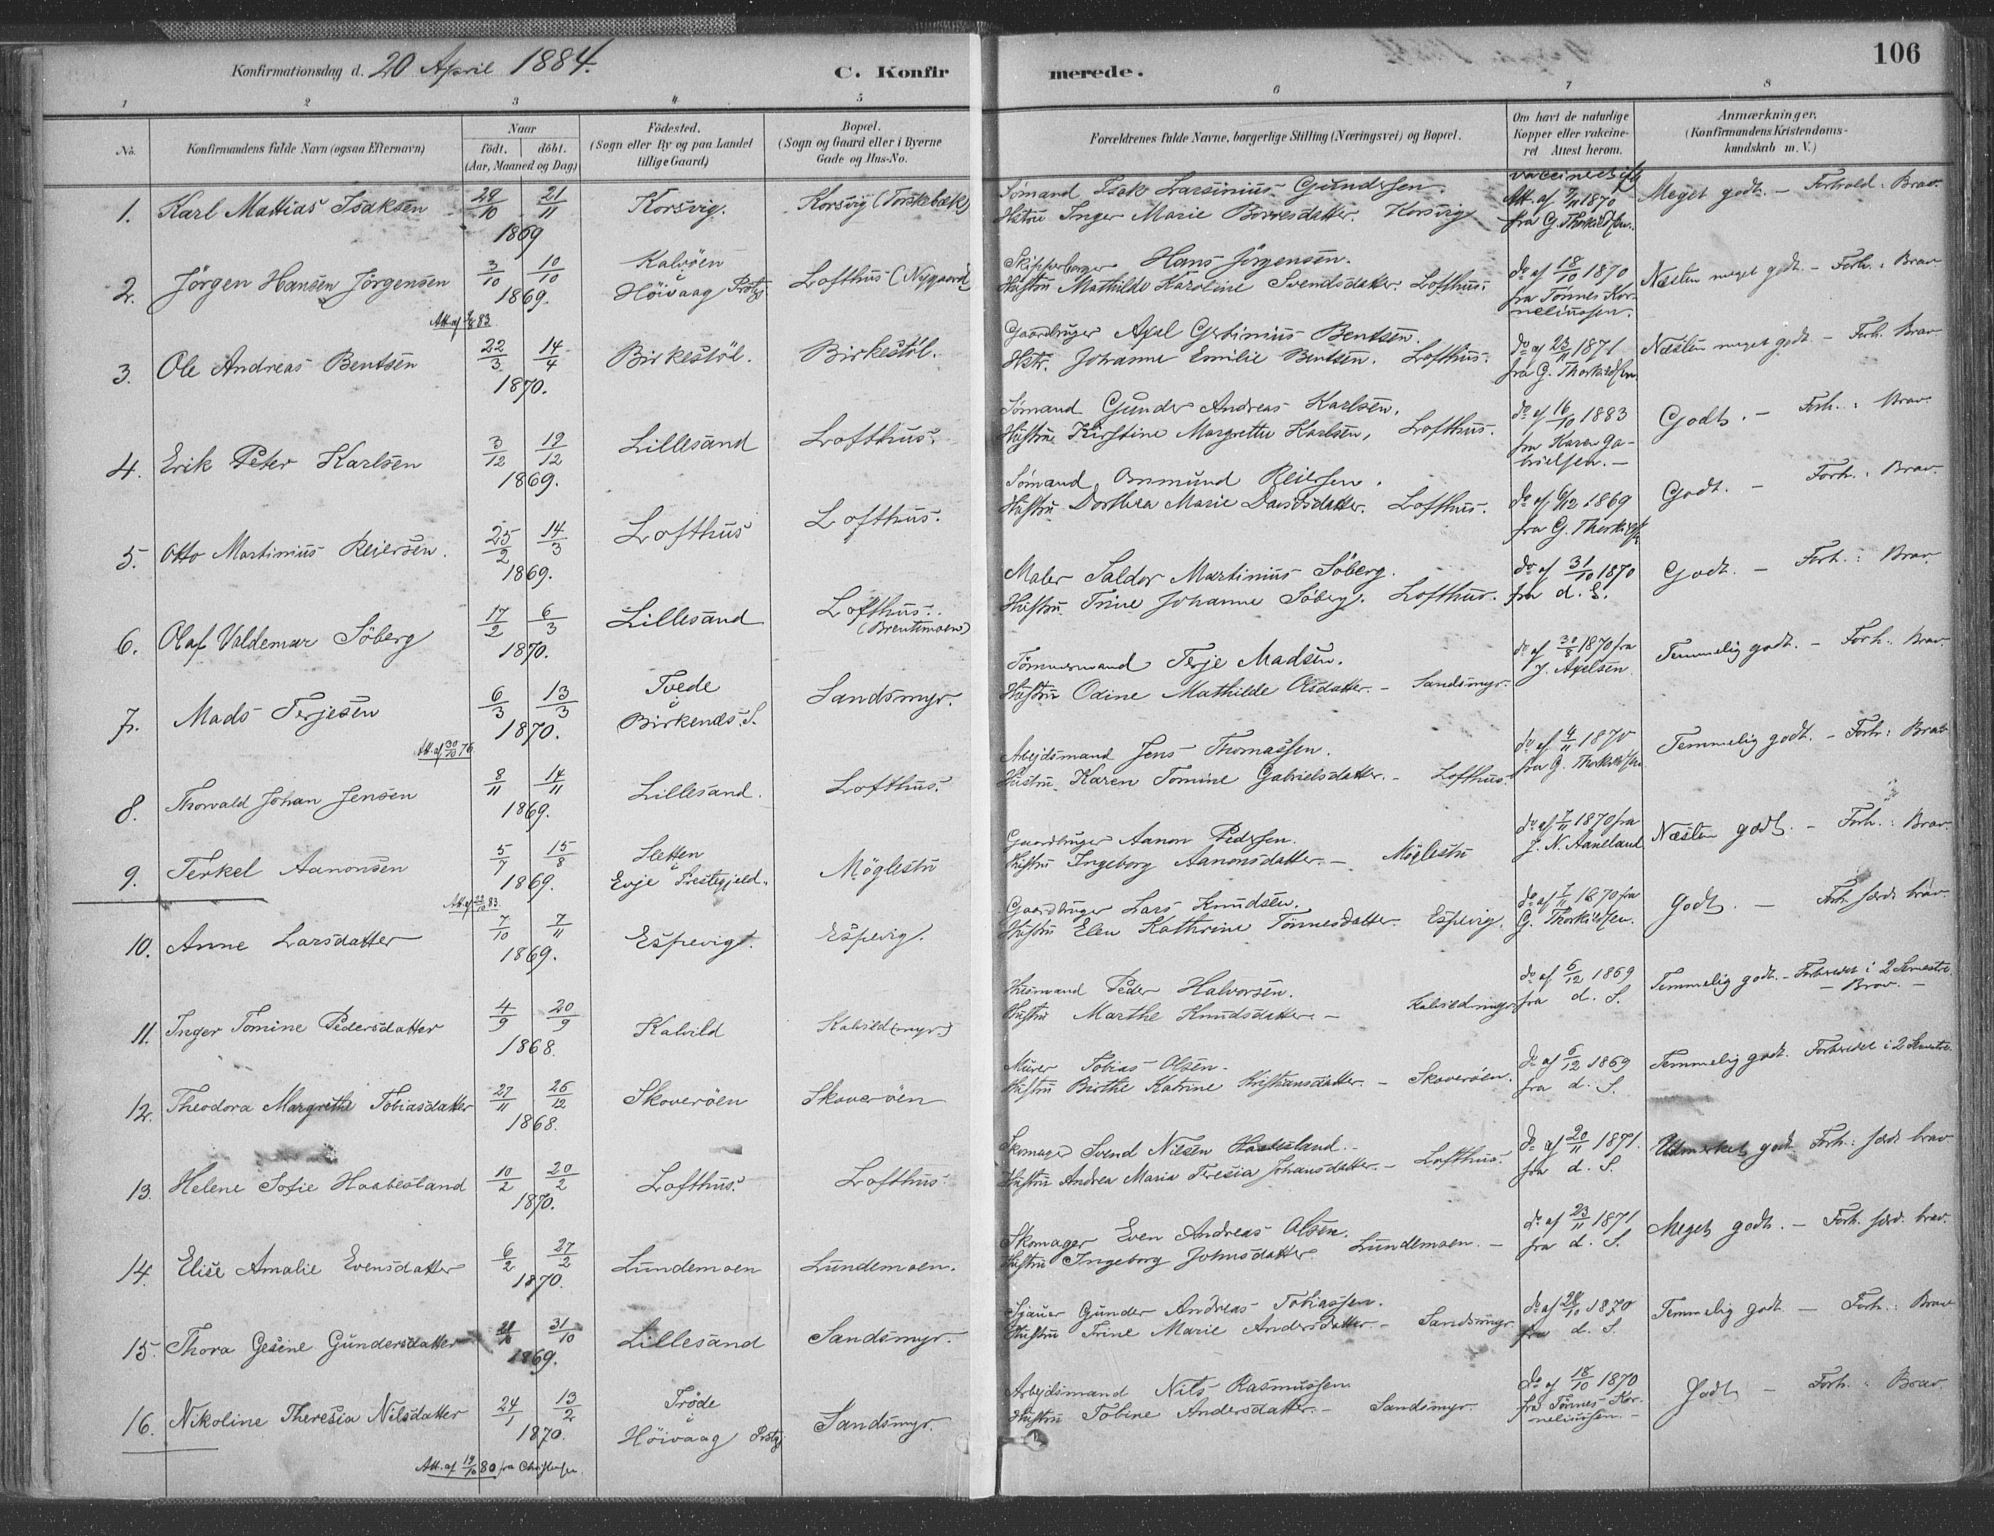 106
Konfirmationsdag d. 20 April 1884.
C. Konfirmerede.
1 2 3 4 5 6 7 8
No.
Konfirmandens fulde Navn (ogsaa Efternavn)
Naar
födt. döbt.
(Aar, Maaned og Dag)
Födested.
(Sogn eller By og paa Landet
tillige Gaard)
Bopæl.
(Sogn og Gaard eller i Byerne
Gade og Hus-No.
Forældrenes fulde Navne, borgerlige Stilling (Næringsvei) og Bopæl.
Om havt de naturlige
Kopper eller vakcineret
Attest herom.
Anmærkninger,
(Konfirmandens Kristendomskundskab
m. V.)
1. Karl Mattias Isaksen 28/10 21/11 1869 Korsvig. Korsvig (Torskebæk)
Sømand Isak Larsinius Gundersen.
Hstru Inger Marie Børresdatter. Korsvig
Att. af 7/11 1870
fra G. Thorkildsen.
Meget godt. – Forhold: Brav.
2. Jörgen Hansen Jörgensen 3/10 10/10 1869. Kalvöen
i
Höivaag Prstgj Lofthus (Nygaard)
Att. af 83
Skipperborger Hans Jörgensen.
Hustru Mathilde Karoline Svendsdatter. Lofthus.
do af 18/10 1870
fra Tönnes Kornelinssen.
Næsten meget godt – Forh.: Brav
3. Ole Andreas Bentsen 22/3 14/4 1870. Birkestöl. Birkestöl.
Gaardbruger Axel Bentsen.
Hstr. Johanne Emilie Bentsen. Lofthus.
do af 23/11 1871
fra G. Thorkildsen
Næsten meget godt – Forh. Brav
4. Erik Peter Karlsen 3/12 19/12 1869. Lillesand Lofthus.
Sømand Gunder Andreas Karlsen.
Hustru Kirstine Margrethe Karlsen, Lofthus.
do af 16/10 1883
fra Karen Gabrielsen. –
Godt. – Forh.: Brav.
5. Otto Martinius Reiersen. 25/2 14/3 1869. Lofthus Lofthus.
Sømand Reiersen.
Hustru Dorthea Marie Davidsdatter. Lofthus.
do af 6/12 1869
fra G. Thorkilds
Godt. – Forh.: Brav.
6. Olaf Valdemar Söberg 17/2 6/3 1870. Lillesand Lofthus.
(Brentemoen)
Maler Saldor Martinius Söberg.
Hustru Trine Johanne Söberg. Lofthus.
do af 31/10 1870
fra d. S.
Godt. – Forh.: Brav.
7. Mads Terjesen 6/3 13/3 1870. Tvede
i
Birkends. S. Sandsmyr.
Att. af 30/10 76
Tömmermand Terje Madsen.
Hustru Odine Mathilde Olsdatter. – Sandsmyr.
do af 30/8 1870 fra
J. Axelsen
Temmelig godt. – Forh.: Brav.
8. Thorvald Johan Jensen 8/11 14/11 1869. Lillesand. Lofthus.
Arbejdsmand Jens Thomassen.
Hustru Karen Tomine Gabrielsdatter. – Lofthus.
do af 4/11 1870
fra G. Thorkildsen
Temmelig godt. – Forh.: Brav
9. Terkel Aanonsen 5/7 15/8 1869. Sletten
i
Evje Prestegjeld. Möglestu
Gaardbruger Aanon Pedersen.
Hustru Ingeborg Aanonsdatter. – Möglestu
do af 7/11 1870 fra
J. N. Aaneland
Næsten godt. – Forh.: Brav.
Att. af 83.
10. Anne Larsdatter 7/10 7/11 1869. Espevig. Espevig.
Gaardbruger Lars Knudsen.
Hustru Elen Kathrine Tönnesdatter. Espevig.
do af 7/11 1870 fra
G. Thorkildsen.
Godt – Forh. særd. brav
11. Inger Tomine Pedersdatter 4/9 20/9 1868. Kalvild Kalvild (myr.)
Husmand Peder Halvorsen.
Hustru Marthe Knudsdatter. – Kalvildmyr
do af 6/12 1869
fra d. S.
Temmelig godt. – Forberedet i 2 Semestre.
– Brav. –
12. Theodora Margrethe Tobiasdatter 27/11 26/12 1868. Skoveröen Skoveröen
Murer Tobias Olsen.
Hustru Birthe Katrine Kristiansdatter. – Skoveröen.
do af 6/12 1869
fra d. S.
Temmelig godt. Forberedet i 2 Semestre.
13. Helene Sofie Haabesland 10/2 20/2 1870. Lofthus. Lofthus.
Skomager Svend Nilsen Haabesland.
Hustru Andrea Maria Teresia Johansdatter. – Lofthus.
do af 20/11 1871.
fra d. S.
Udmerket godt. Forh.: særd. brav
14. Elise Amalie Evensdatter 6/2 27/2 1870. Lundemoen Lundemoen.
Skomager Even Andreas Olsen.
Hustru Ingeborg Johnsdatter. Lundemoen. –
do af 23/11 1871
fra d. S.
Meget godt. – Forh. særd. brav.
15. Thora Gesine Gundersdatter 31/10 1869. Lillesand Sandsmyr.
Sjauer Gunder Andreas Tobiassen.
Hustru Trine Marie Andersdatter – Sandsmyr.
do af 28/10 1870
fra d. S.
Temmelig godt – Forh.: Brav
16. Nikoline Theresia Nilsdatter 24/1 13/2 1870. Tröde
i
Höivaag Prstgj Sandsmyr.
Arbejdsmand Nils Rasmussen
Hustru Tobine Andersdatter. – Sandsmyr.
do af 18/10 1870
fra Tönnes Kornelinssen. –
Godt – Forh.: Brav.
Att. af 19/10 80 fra Christensen.